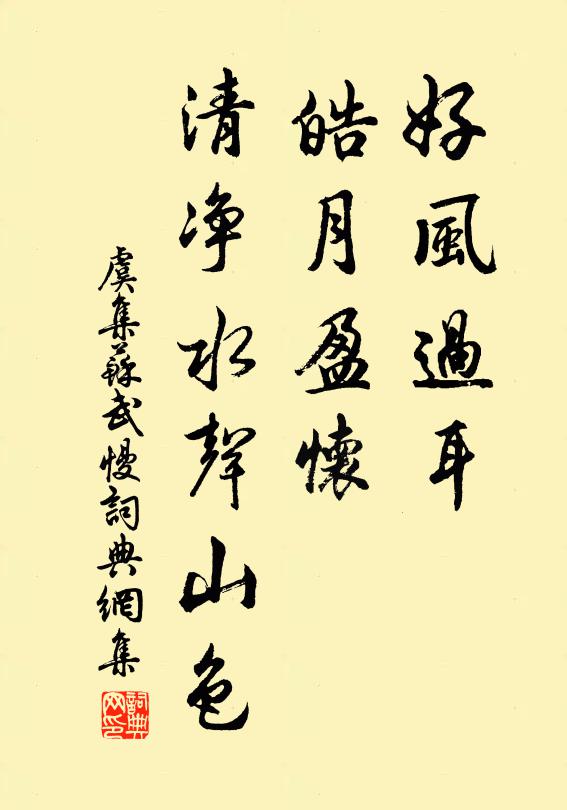 好風過耳
皓月盈懷
清净水聲山色
虞集蘇武慢詞典網集
詞典网印